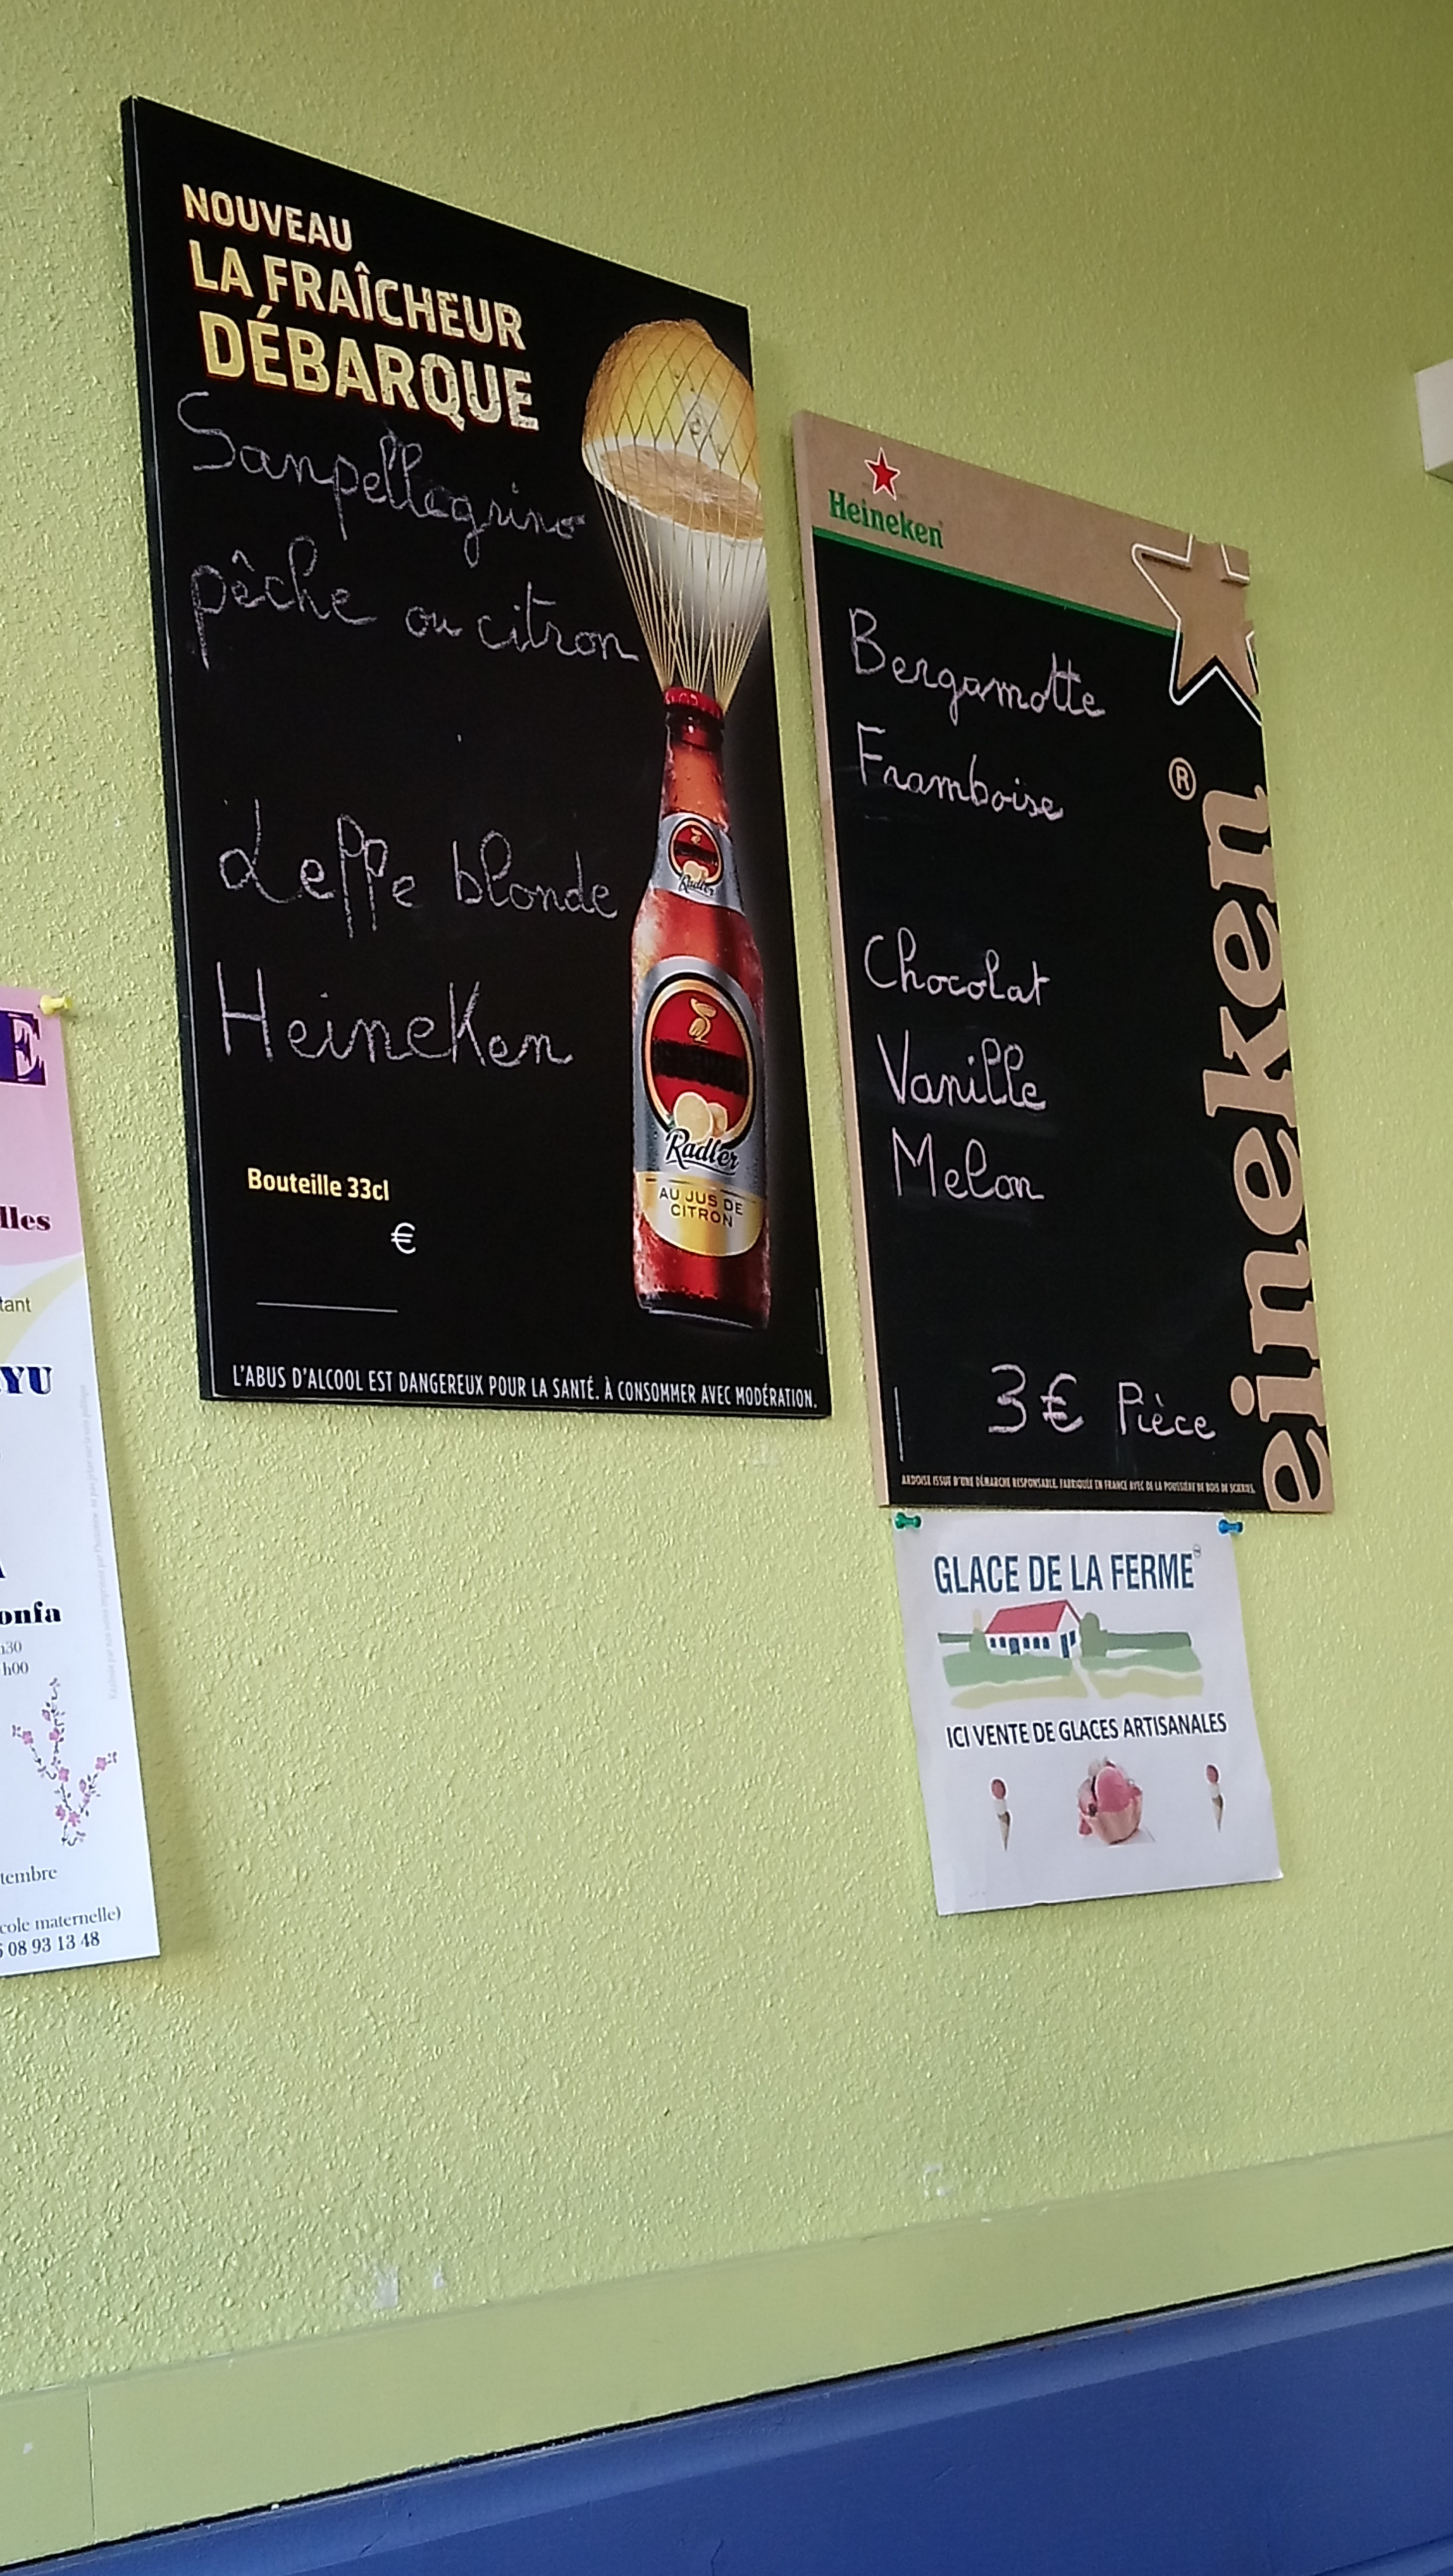 NOUVEAU
LA FRAÎCHEUR
DÉBARQUE
Sanpellegrino
pêche ou citron
Leffe blonde
Heineken
Radler
Radler
AU JUS DE
CITRON
Bouteille 33cl
€
L'ABUS D'ALCOOL EST DANGEREUX POUR LA SANTÉ. À CONSOMMER AVEC MODÉRATION.
Heineken
Bergamotte
Framboise
Chocolat
Vanille
Melon
3€ Pièce
eineken®
ARDOISE ISSUE D'UNE DÉMARCHE RESPONSABLE. FABRIQUÉE EN FRANCE AVEC DE LA POUSSIÈRE DE BOIS DE SCIERIES.
GLACE DE LA FERME
ICI VENTE DE GLACES ARTISANALES
E
lles
tant
YU
onfa
h30
h00
tembre
cole maternelle)
08 93 13 48